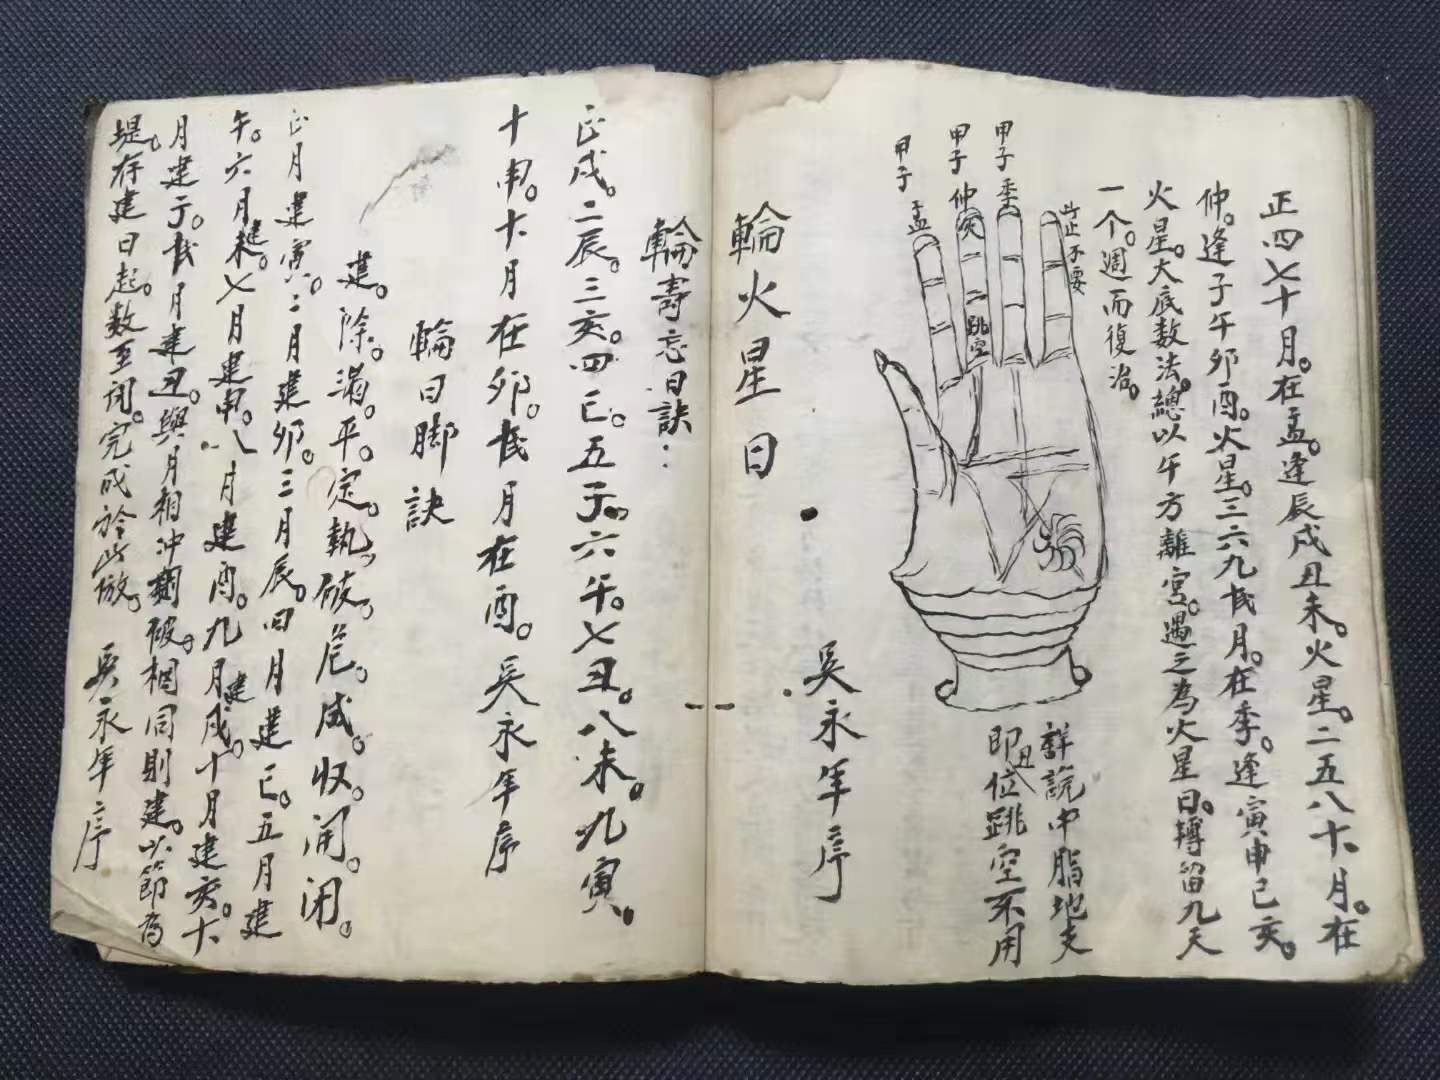 正四七十月。在孟。逢辰戌丑未。火星。二五八十一月。在
仲。逢子午卯酉。火星。三六九十二月。在季。逢寅申巳亥。
火星。大底数法。總以午方離宮。遇之為火星日。轉留九天
一个。週而復治。
此正不要
甲子季
甲子仲
甲子孟
一
二
跳空
詳說中脂地支
即丑位跳空不用
吳永年序
輪火星日
輪壽忘日訣：
正戌。二辰。三亥。四巳。五子。六午。七丑。八未。九寅。
十申。十一月在卯。十二月在酉。吳永年序
輪日脚訣
建。除。滿。平。定。執。破。危。成。収。開。闭。
正月建寅。二月建卯。三月辰。四月建巳。五月建
午。六月建未。七月建申。八月建酉。九月建戌。十月建亥。十一
月建子。十二月建丑。與月相冲則破。相同則建。以節為
堤。存建日起。数至闭。完成於此倣。吳永年序